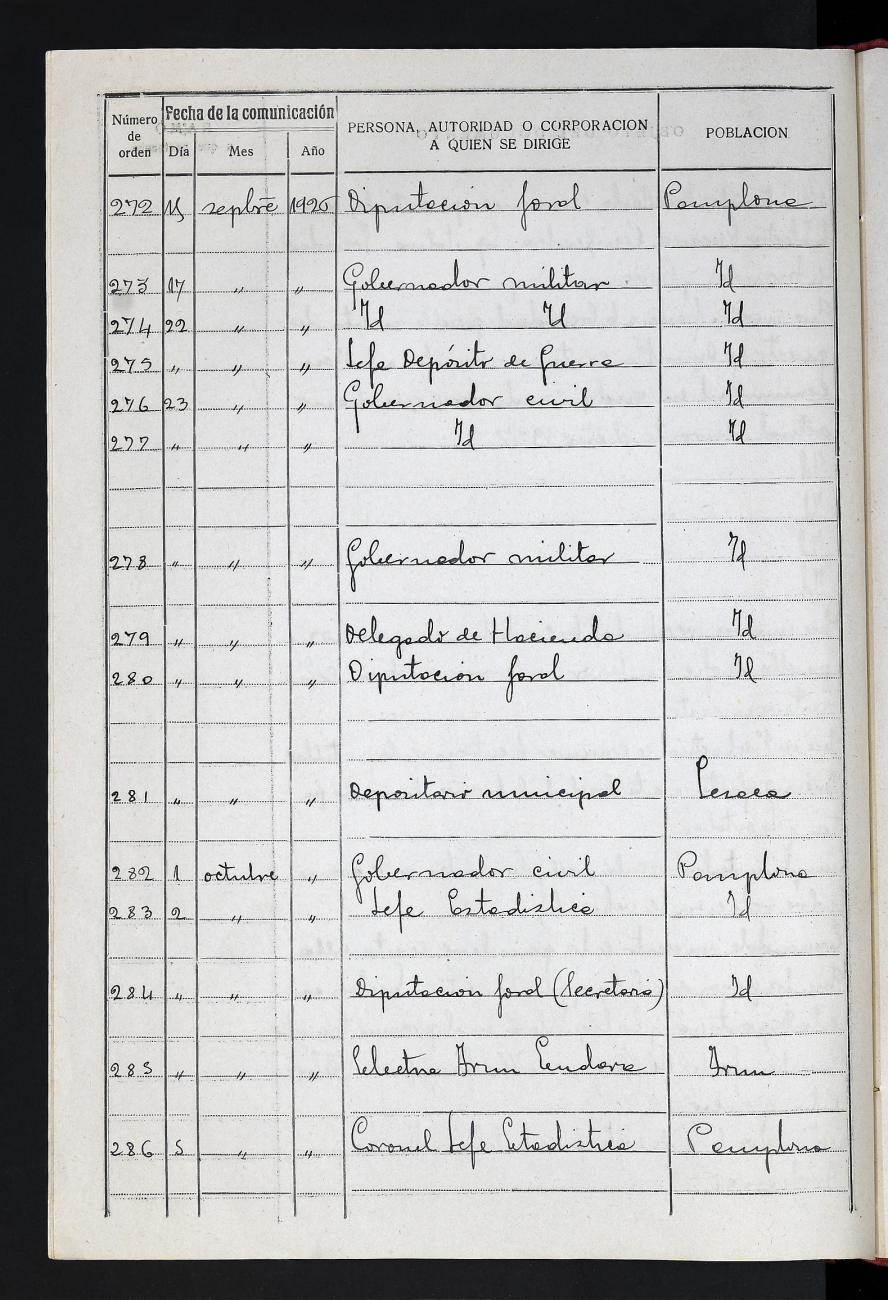 Número de orden Fecha de la comunicación PERSONA, AUTORIDAD O CORPORACION A QUIEN SE DIRIGE POBLACION
Día Mes Año
272 15 sepbre 1926 Diputacion foral Pamplona
273 17 " " Gobernador militar Id
274 22 " " Id Id Id
275 " " " Jefe Depósito de Guerra Id
276 23 " " Gobernador civil Id
277 " " " Id Id
278 " " " Gobernador militar Id
279 " " " Delegado de Hacienda Id
280 " " " Diputacion foral Id
281 " " " Depositario municipal Lesaca
282 1 octubre " Gobernador civil Pamplona
283 2 " " Jefe Estadistica Id
284 " " " Diputacion foral (Secretaria) Id
285 " " " Electra Irun Endara Irun
286 5 " " Coronel Jefe Estadistica Pamplona